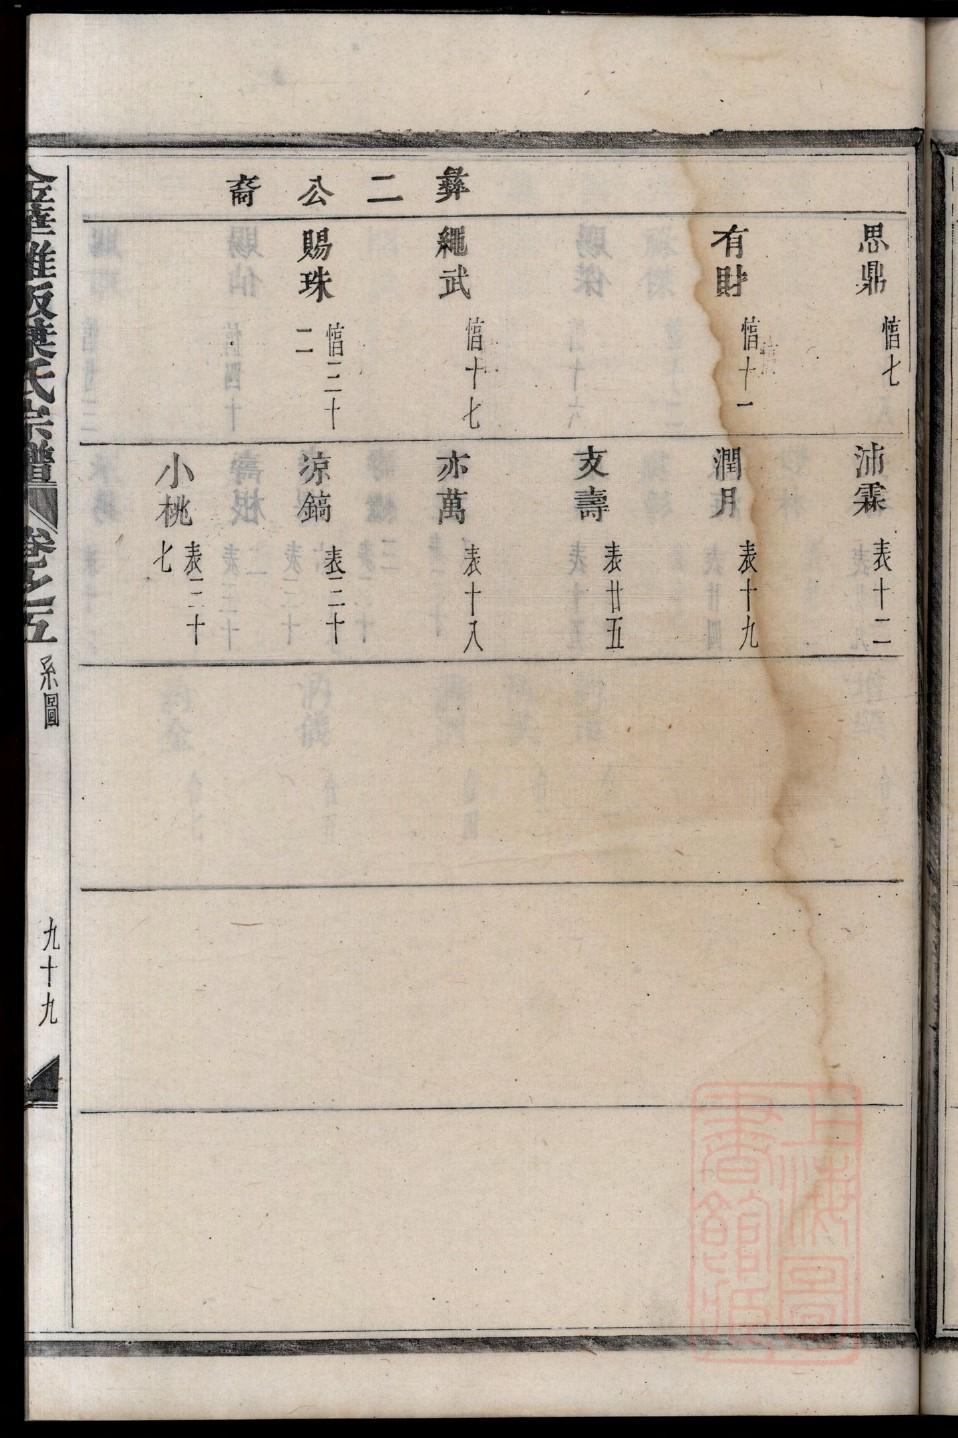 彝二公裔
思鼎 愭七
有財 愭十一
繩武 愭十七
賜珠 愭三十二
沛霖 表十二
潤月 表十九
友壽 表廿五
亦萬 表十八
涼鎬 表三十
小桃 表三十七
金華雅畈葉氏宗譜 卷之五 系圖 九十九
上海圖書館藏